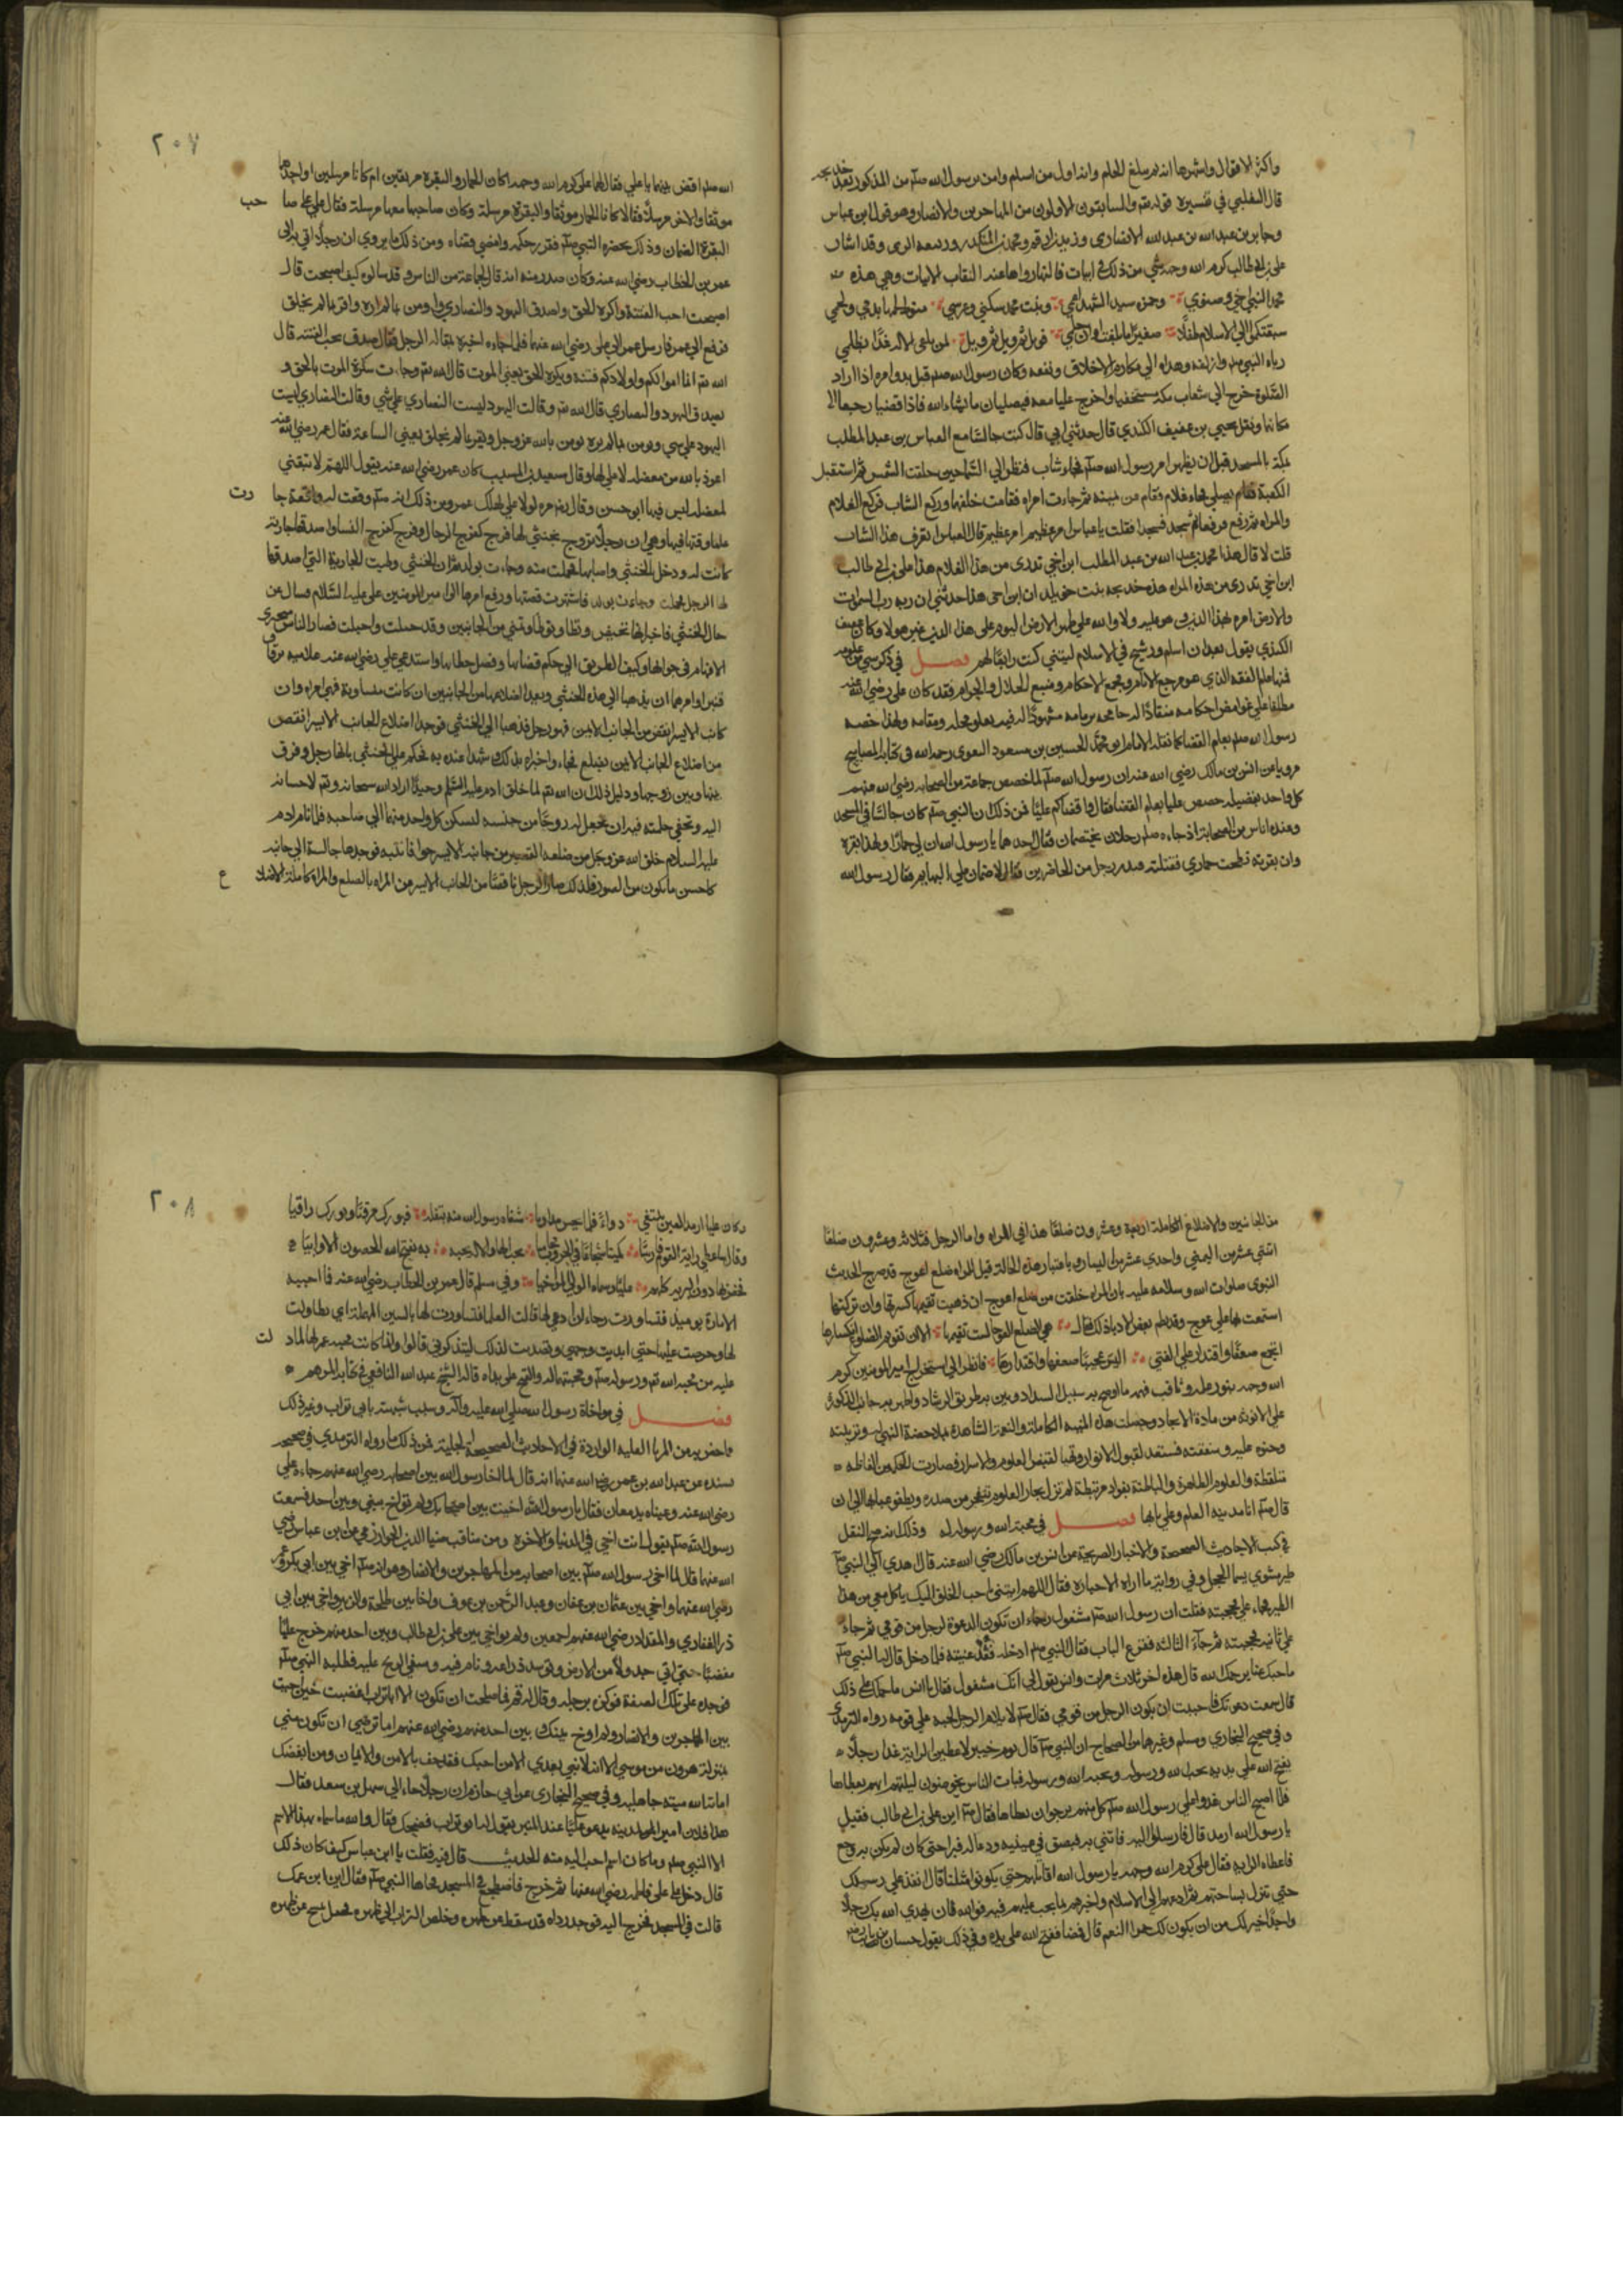 واكثر الاقوال واشهرها انه لم يبلغ الحلم وانه اول من اسلم وامن برسول الله صلم من المذكور بعد خديجه
قال الثعلبي في تفسيره قوله تع والسابقون الاولون من المهاجرين والانصار وهو قول ابن عباس
وجابر بن عبد الله الانصاري وزيد بن ارقم ومحمد بن المنكدر وربيعه الراى وقد اشار
علي بن ابي طالب كرم الله وجهه الي شي من ذلك في ابيات قالها رواها عنه الثقات الاثبات وهي هذه
محمد النبي اخي وصنوي وحمزه سيد الشهدا عمي وبنت محمد سكني وعرسي منوط لحمها بدمي ولحمي
سبقتكم الي الاسلام طفلا صغيرا ما بلغت اوان حلمي فويل ثم ويل ثم ويل لمن يلقى الاله غدا بظلمي
رباه النبي صلم وازلفه وهداه الي مكارم الاخلاق وكان رسول الله صلم قبل بدو امره اذا اراد
الصلوة خرج الي شعاب مكة مستخفيا واخرج عليا معه فيصليان ما شاء الله فاذا قضيا رجعا الا
مكانهما ونقل يحيي بن عفيف الكندي قال حدثني ابي قال كنت جالسا مع العباس بن عبد المطلب
بمكة بالمسجد قبل ان يظهر امر رسول الله صلم فجاء شاب فنظر الي السما حين حلقت الشمس ثم استقبل
الكعبة فقام يصلي فجاء غلام فقام عن يمينه ثم جاءت امراه فقامت خلفهما فركع الشاب فركع الغلام
والمراه ثم رفع فرفعا ثم سجد فسجدا فقلت يا عباس امر عظيم فقال العباس امر عظيم اتعرف هذا الشاب
قلت لا قال هذا محمد بن عبد الله بن عبد المطلب ابن اخي تدري من هذا الغلام هذا علي بن ابي طالب
ابن اخي تدري من هذه المراه هذه خديجه بنت خويلد ان ابن اخي هذا حدثني ان ربه رب السموات
والارض امره بهذا الدين الذي هو عليه ولا والله علي ظهر الارض اليوم علي هذا الدين غير هولا وكان عفيف
الكندي يقول بعد ان اسلم ورسخ في الاسلام ليتني كنت رابعا لهم فصل في ذكر شي من علومه
فمنها علم الفقه الذي هو مرجع الانام ومجمع الاحكام ومنبع الحلال والحرام فقد كان علي رضي الله عنه
مطلعا علي غوامض احكامه منقادا له جامحه بزمامه مشهودا له فيه بعلو محله ومقامه ولهذا خصه
رسول الله صلم بعلم القضا كما نقله الامام ابو محمد الحسين بن مسعود البغوي رحمه الله في كتابه المصابيح
مرويا عن انس بن مالك رضي الله عنه ان رسول الله صلم لما خصص جماعة من الصحابه رضي الله عنهم
كل واحد بفضيله خصص عليا بعلم القضا فقال واقضاكم عليا فمن ذلك ان النبي صلم كان جالسا في المسجد
وعنده اناس من الصحابة اذ جاءه صلم رجلان يختصمان فقال احدهما يا رسول الله ان لي حمارا ولهذا بقرة
وان بقرته نطحت حماري فقتلته فبدر رجل من الحاضرين فقال لا ضمان علي البهايم فقال رسول الله
٢٠٧
الله صلم اقض بينهما يا علي فقال لهما علي كرم الله وجهه اكان الحمار والبقرة موثقين ام كانا مرسلين او احدهما
موثقا والاخر مرسلا فقالا كان الحمار موثقا والبقرة مرسلة وكان صاحبها معها مرسلة فقال علي علي صا حب
البقرة الضمان وذلك بحضرة النبي صلم فقرر حكمه وامضي قضاه ومن ذلك ما يروي ان رجلا اتي به الى
عمر بن الخطاب رضي الله عنه وكان صدر منه انه قال لجماعة من الناس وقد سالوه كيف اصبحت قال
اصبحت احب الفتنة واكره الحق واصدق اليهود والنصاري واومن بما لم اره واقر بما لم يخلق
فرفع الي عمر فارسل عمر الي علي رضي الله عنهما فلما جاءه اخبره بمقالة الرجل فقال صدق يحب الفتنة قال
الله تع انما اموالكم واولادكم فتنة ويكره الحق يعني الموت قال الله تع وجاءت سكرة الموت بالحق و
يصدق اليهود والنصاري قال الله تع وقالت اليهود ليست النصاري علي شي وقالت النصاري ليست
اليهود علي شي ويومن بما لم يره يومن بالله عز وجل ويقر بما لم يخلق يعني الساعة فقال عمر رضي الله عنه
اعوذ بالله من معضله لا علي لها وقال سعيد بن المسيب كان عمر رضي الله عنه يقول اللهم لا تبقني
لمعضله ليس فيها ابو حسن وقال مره لولا علي لهلك عمر ومن ذلك انه صلم وقعت له واقعة حا رت
علما وقتها فيها وهي ان رجلا تزوج بخنثي لها فرج كفرج الرجال وفرج كفرج النسا واصدقها جارية
كانت له ودخل بالخنثي واصابها فحملت منه وجاءت بولد ثم ان الخنثي وطيت الجارية التي اصدقها
لها الرجل فحملت وجاءت بولد فاشتهرت قصتها ورفع امرها الى امير المومنين علي عليه السلام فسال عن
حال الخنثي فاخبر انها تحيض وتطا وتوطا وتمني من الجانبين وقد حبلت واحبلت فصار الناس متحيري
الافهام في جوابها وكيف الطريق الي حكم قضايها وفصل خطابها فاستدعي علي رضي الله عنه غلاميه برقا و
قنبر وامرهما ان يذهبا الي هذه الخنثي ويعدا اضلاعها من الجانبين ان كانت متساوية فهي امراه وان
كانت الايسر انقص من الجانب الايمن فهو رجل فذهبا الي الخنثي فوجدا اضلاع الجانب الايسر انقص
من اضلاع الجانب الايمن بضلع فجاء واخبراه بذلك وشهدا عنده به فحكم علي الخنثي بانها رجل وفرق
بينها وبين زوجها ودليل ذلك ان الله تع لما خلق ادم عليه السلام وحيدا اراد الله سبحانه وتع لاحسانه
اليه وتخفي حكمته فيه ان يجعل له زوجا من جنسه ليسكن كل واحد منهما الي صاحبه فلما نام ادم
عليه السلام خلق الله عز وجل من ضلعه القصير من جانبه الايسر حوا فانتبه فوجدها جالسة الي جانبه
كاحسن ما يكون من الصور فلذلك صار الرجل ناقصا من الجانب الايسر من المراه بالضلع والمراه كاملة الاضلا ع
من الجانبين والاضلاع الكاملة اربعة وعشرون ضلعا هذا في المراه واما الرجل فثلاثة وعشرون ضلعا
اثني عشر من اليمني واحدي عشر من اليسار وباعتبار هذه الحالة قيل للمراه ضلع اعوج قد صرح الحديث
النبوي صلوات الله وسلامه عليه بان المراه خلقت من ضلع اعوج ان ذهبت تقيمها كسرتها وان تركتها
استمتعت بها علي عوج وقد نظم بعض الادبا ذلك فقال هي الضلع العوجا لست تقيمها الا ان تقويم الضلوع انكسارها
اتجمع ضعفا واقتدارا علي الفتي اليس عجيبا ضعفها واقتدارها فانظر الي استخراج امير المومنين كرم
الله وجهه بنور علمه وثاقب فهمه ما اوضح به سبيل السداد وبين به طريق الرشاد واظهر به جانب الذكورة
علي الانوثة من مادة الايجاد وحصلت هذه المنحة الكاملة والنعمة الشاملة بملاحظة النبي له وتربيته
وحنوه عليه وشفقته فاستعد لقبول الانوار وتهيا لفيض العلوم والاسرار فصارت الحكمة من الفاظه
ملتقطة والعلوم الظاهرة والباطنة بفواده مرتبطة لم تزل بحار العلوم تتفجر من صدره ويطفو عبابها الي ان
قال صلم انا مدينة العلم وعلي بابها فصل في محبة الله ورسوله له وذلك انه صح النقل
في كتب الاحاديث الصحيحة والاخبار الصريحة عن انس بن مالك رضي الله عنه قال اهدي الي النبي صلم
طير مشوي يسما الحجل وفي رواية ما اراه الا حباره فقال اللهم ايتني باحب الخلق اليك ياكل معي من هذا
الطير فجاء علي فحجبته فقلت ان رسول الله صلم مشغول رجاء ان تكون الدعوة لرجل من قومي ثم جاء
علي ثانية فحجبته ثم جاء الثالثه فقرع الباب فقال النبي صلم ادخله فقد عنيته فلما دخل قال له النبي صلم
ما حبسك عنا يرحمك الله قال هذه اخر ثلاث مرات وانس يقول لي انك مشغول فقال يا انس ما حملك علي ذلك
قال سمعت دعوتك فاحببت ان يكون الرجل من قومي فقال صلم لا يلام الرجل لحبه علي قومه رواه الترمذي
وفي صحيح البخاري ومسلم وغيرهما من الصحاح ان النبي صلم قال يوم خيبر لاعطين الراية غدا رجلا
يفتح الله علي يديه يحب الله ورسوله ويحبه الله ورسوله فبات الناس يخوضون ليلتهم ايهم يعطاها
فلما اصبح الناس غدوا علي رسول الله صلم كل منهم يرجو ان يعطاها فقال صلم اين علي بن ابي طالب فقيل
يا رسول الله ارمد قال فارسلوا اليه فاتي به فبصق في عينيه ودعا له فبرا حتي كان لم يكن به وجع
فاعطاه الراية فقال علي كرم الله وجهه يا رسول الله اقاتلهم حتي يكونوا مثلنا قال انفذ علي رسلك
حتي تنزل بساحتهم ثم ادعهم الي الاسلام واخبرهم بما يجب عليهم فيه فوالله لان يهدي الله بك رجلا
واحدا خير لك من ان يكون لك حمر النعم قال فمضا ففتح الله علي يده وفي ذلك يقول حسان بن ثابت
٢٠٨
وكان عليا ارمد العين يبتغي دواء فلما لم يحس مداويا شفاه رسول الله منه بتفله فبورك مرقيا وبورك راقيا
وقال ساعطي راية القوم فارسا كميا شجاعا في الحروب محاميا يحب الها والاله يحبه به يفتح الله الحصون الاوابيا
فخص بها دون البرية كلهم عليا وسماه الولي المواخيا وفي مسلم قال عمر بن الخطاب رضي الله عنه فما احببت
الامارة يومئذ فتساورت رجاء ان ادعي لها قالت العلما فتساورت لها بالسين المهملة اي تطاولت
لها وحرصت عليها حتي ابديت وجهي وتصديت لذلك ليتذكرني قالوا وانما كانت محبة عمر لها لما د لت
عليه من محبة الله تع ورسوله صلم ومحبتهما له والفتح علي يداه قاله الشيخ عبد الله اليافعي في كتابه المرهم
فصل في مواخاة رسول الله صلي الله عليه واله وسبب تسميته بابي تراب وغير ذلك
ما خص به من المزايا العلية الواردة في الاحاديث الصحيحة الجلية فمن ذلك ما رواه الترمذي في صحيحه
بسنده عن عبد الله بن عمر رضي الله عنهما انه قال لما اخا رسول الله بين اصحابه رضي الله عنهم جاءه علي
رضي الله عنه وعيناه يدمعان فقال يا رسول الله اخيت بين اصحابك ولم تواخ بيني وبين احد فسمعت
رسول الله صلم يقول انت اخي في الدنيا والاخرة ومن مناقب ضيا الدين الخوارزمي عن ابن عباس رضي
الله عنهما قال لما اخي رسول الله صلم بين اصحابه من المهاجرين والانصار وهو انه صلم اخي بين ابي بكر وعمر
رضي الله عنهما واخي بين عثمان بن عفان وعبد الرحمن بن عوف واخا بين طلحة والزبير واخي بين ابي
ذر الغفاري والمقداد رضي الله عنهم اجمعين ولم يواخي بين علي بن ابي طالب وبين احد منهم خرج عليا
مغضبا حتي اتي جدولا من الارض وتوسد ذراعه ونام فيه وسفي الريح عليه فطلبه النبي صلم
فوجده علي تلك الصفة فوكزه برجله وقال له قم فما صلحت ان تكون الا ابا تراب اغضبت حين اخيت
بين المهاجرين والانصار ولم اواخ بينك وبين احد منهم رضي الله عنهم اما ترضي ان تكون مني
بمنزلة هرون من موسي الا انه لا نبي بعدي الا من احبك فقد حف بالامن والايمان ومن ابغضك
اماته الله ميتة جاهلية وفي صحيح البخاري عن ابي حازم ان رجلا جاء الي سهل بن سعد فقال
هذا فلان امير المدينه يدعو عليا عند المنبر يقول له ابو تراب فضحك وقال والله ما سماه بهذا الاسم
الا النبي صلم وما كان اسم احب اليه منه الحديث قال فيه فقلت يا ابا عباس كيف كان ذلك
قال دخل علي علي فاطمه رضي الله عنها ثم خرج فاضطجع في المسجد فجاها النبي صلم فقال اين ابن عمك
قالت في المسجد فخرج اليه فوجد رداه قد سقط عن ظهره وخلص التراب الي ظهره فجعل يمسح عن ظهره